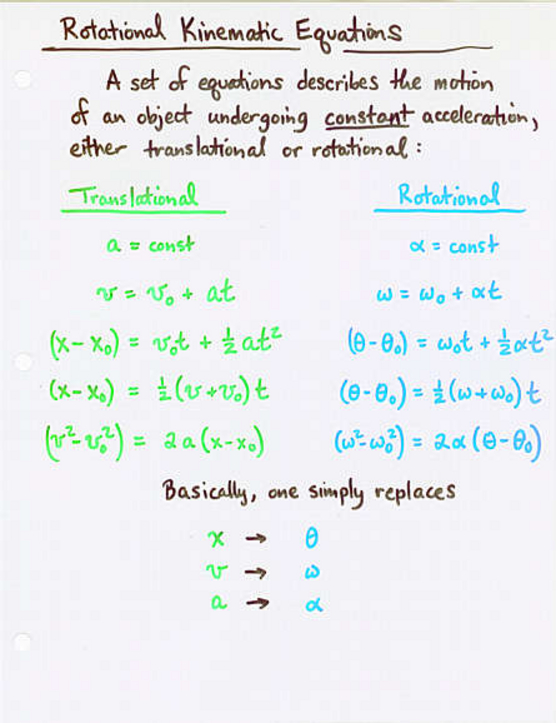 Rotational Kinematic Equations
A set of equations describes the motion
of an object undergoing constant acceleration,
either translational or rotational:
Translational Rotational
a = const α = const
v = v₀ + at ω = ω₀ + αt
(x - x₀) = v₀t + ½at² (θ - θ₀) = ω₀t + ½αt²
(x - x₀) = ½(v + v₀)t (θ - θ₀) = ½(ω + ω₀)t
(v² - v₀²) = 2a(x - x₀) (ω² - ω₀²) = 2α(θ - θ₀)
Basically, one simply replaces
x → θ
v → ω
a → α